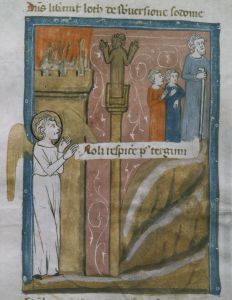 Dñs liberuit loth de subuersione sodome
Noli respice p' tergum